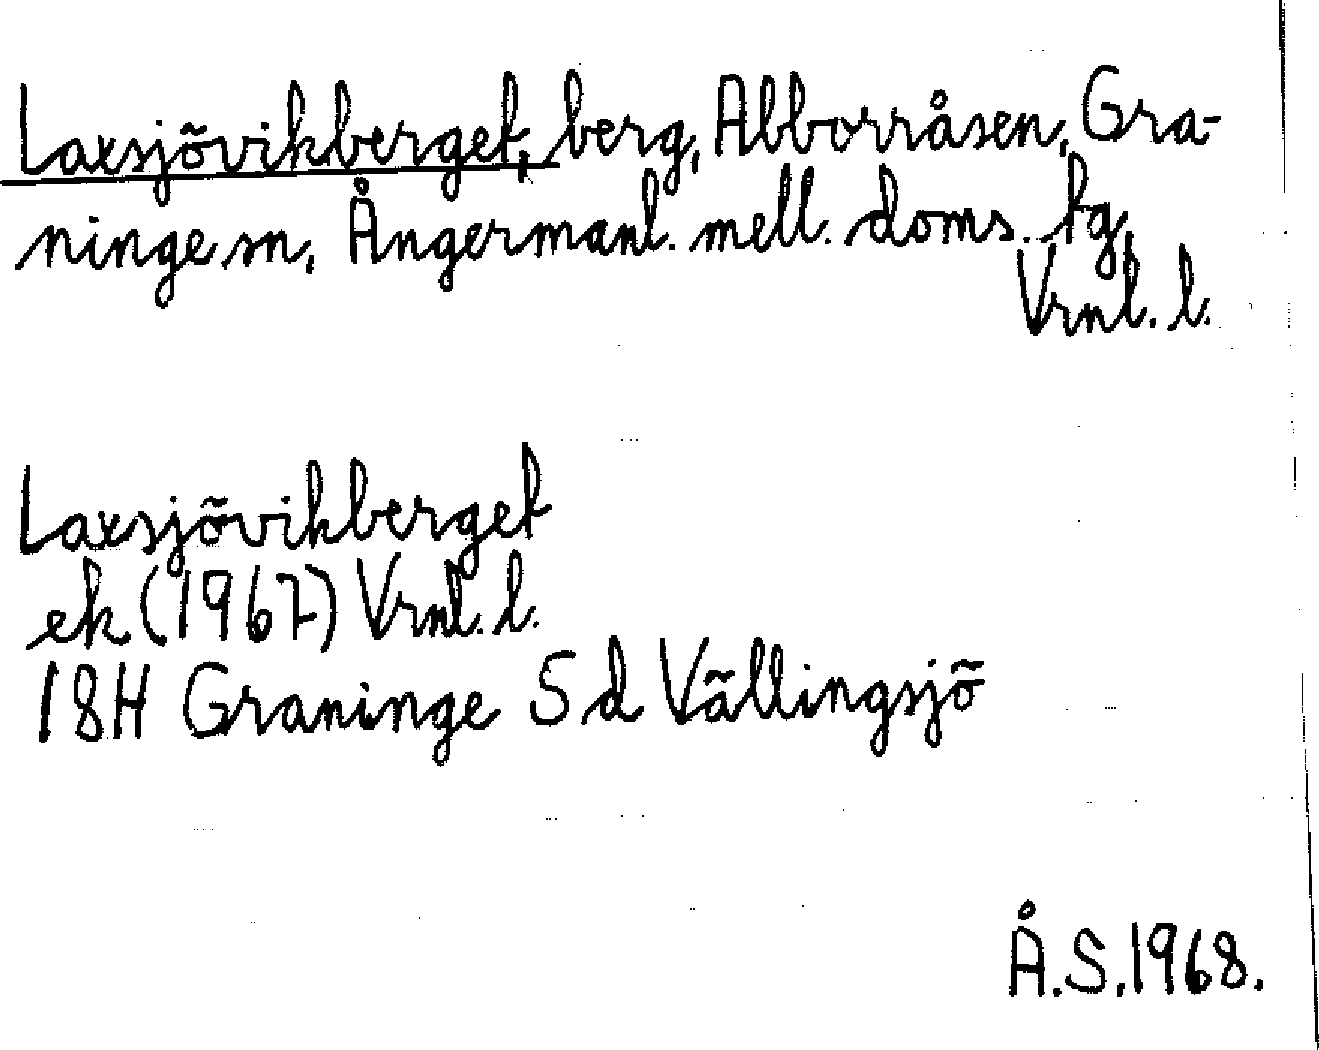 Laxsjövikberget, berg, Abborråsen, Gra-
ninge sn, Ångermanl. mell. doms. tg,
Vrnl. l.
Laxsjövikberget
ek (1967) Vrnl. l.
18H Graninge S d Vällingsjö
Å.S. 1968.